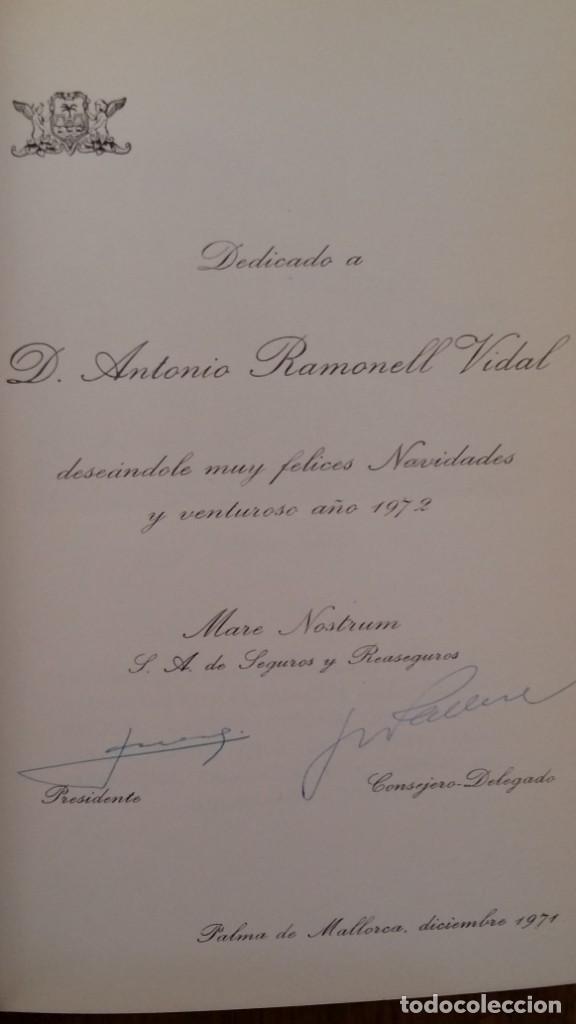 Dedicado a
D. Antonio Ramonell Vidal
deseándole muy felices Navidades
y venturoso año 1972
Mare Nostrum
S. A. de Seguros y Reaseguros
Presidente
Consejero-Delegado
Palma de Mallorca, diciembre 1971
todocoleccion